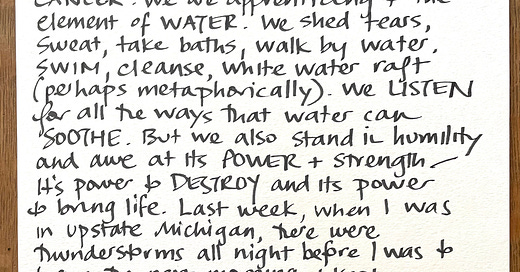 CANCER. We are apprenticing to the
element of WATER. We shed tears,
sweat, take baths, walk by water,
SWIM, cleanse, white water raft
(perhaps metaphorically). We LISTEN
for all the ways that water can
SOOTHE. But we also stand in humility
and awe at its POWER + strength –
It's power to DESTROY and its power
to bring life. Last week, when I was
in upstate Michigan, there were
thunderstorms all night before I was to